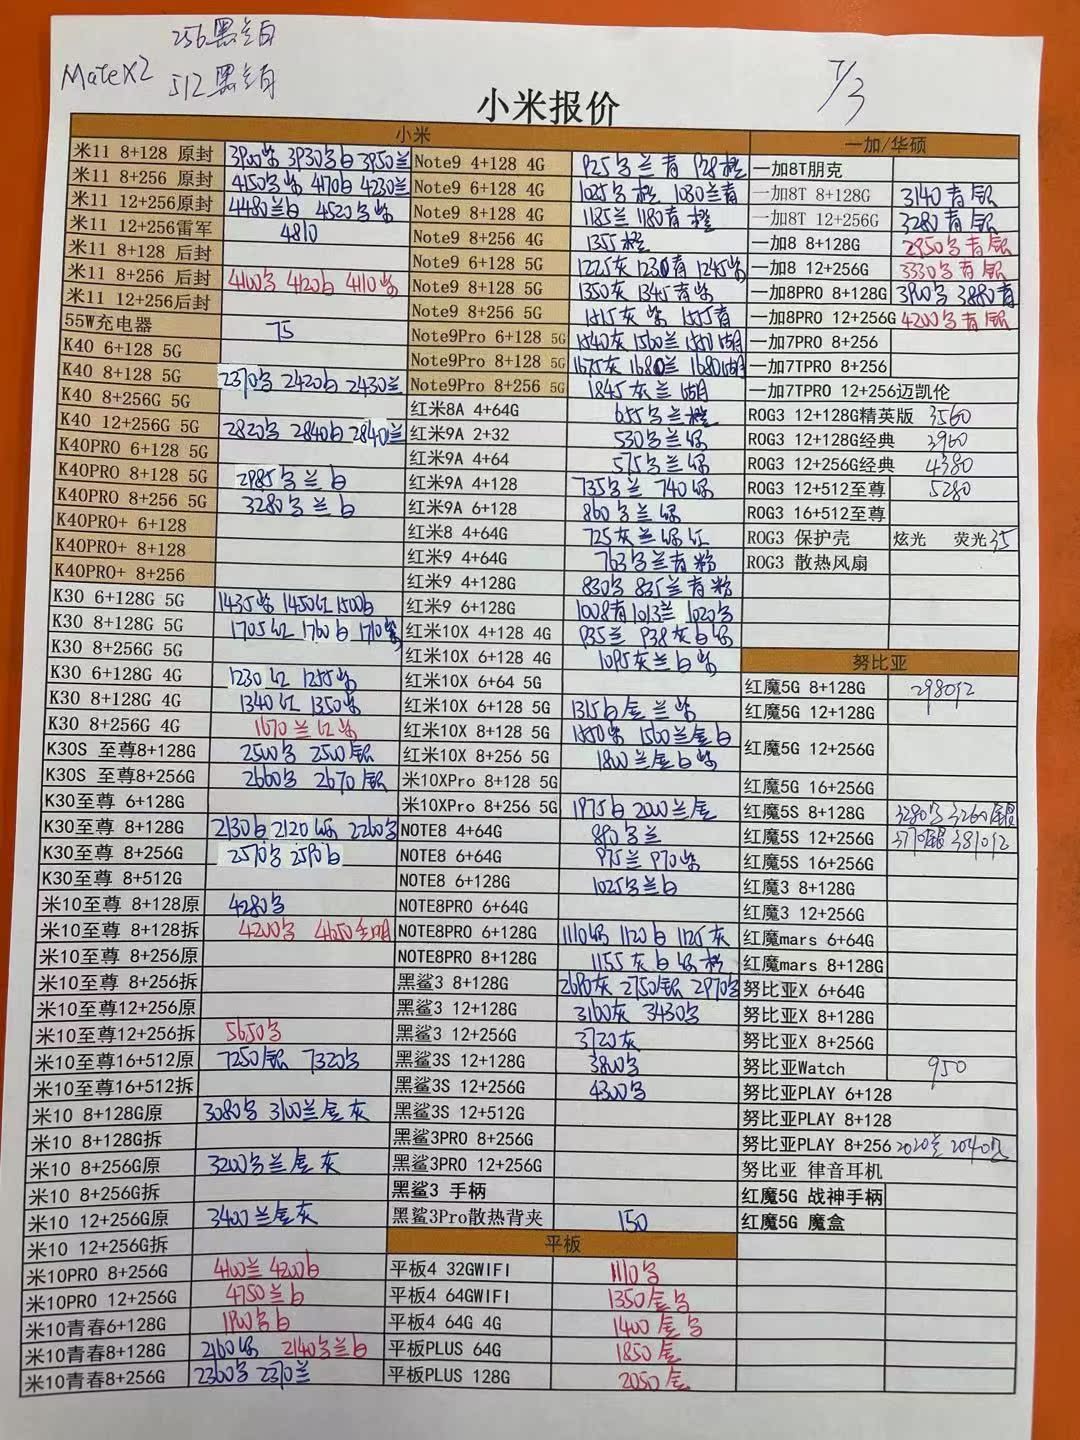 256黑白
MateX2 512黑白
7/3
小米报价
小米 一加/华硕
米11 8+128 原封 3930 3950兰 Note9 4+128 4G 925 兰青 928橙 一加8T朋克
米11 8+256 原封 4150 4170白 4230兰 Note9 6+128 4G 1025 橙 1030兰青 一加8T 8+128G 3140青银
米11 12+256原封 4480兰白 4520 Note9 8+128 4G 1185兰 1180青橙 一加8T 12+256G 3280青银
米11 12+256雷军 4810 Note9 8+256 4G 1355橙 一加8 8+128G 2950 青银
米11 8+128 后封 Note9 6+128 5G 1225灰 1230青 1245紫 一加8 12+256G 3330 青银
米11 8+256 后封 4100 4120白 4110紫 Note9 8+128 5G 1350灰 1345青紫 一加8PRO 8+128G 3900 3880青
米11 12+256后封 Note9 8+256 5G 1515灰紫 1555青 一加8PRO 12+256G 4200 青银
55W充电器 75 Note9Pro 6+128 5G 1540灰 1560兰 1550湖 一加7PRO 8+256
K40 6+128 5G Note9Pro 8+128 5G 1675灰 1680兰 1680湖 一加7TPRO 8+256
K40 8+128 5G 2370 2420白 2430兰 Note9Pro 8+256 5G 1845灰兰湖 一加7TPRO 12+256迈凯伦
K40 8+256G 5G 红米8A 4+64G 655 兰橙 ROG3 12+128G精英版 3560
K40 12+256G 5G 2820 2840白 2840兰 红米9A 2+32 530 兰绿 ROG3 12+128G经典 3960
K40PRO 6+128 5G 红米9A 4+64 575 兰绿 ROG3 12+256G经典 4380
K40PRO 8+128 5G 2985 兰白 红米9A 4+128 735 兰 740绿 ROG3 12+512至尊 5280
K40PRO 8+256 5G 3280 兰白 红米9A 6+128 860 兰绿 ROG3 16+512至尊
K40PRO+ 6+128 红米8 4+64G 725灰兰绿红 ROG3 保护壳 炫光 荧光35
K40PRO+ 8+128 红米9 4+64G 763 兰青粉 ROG3 散热风扇
K40PRO+ 8+256 红米9 4+128G 830 835兰青粉
K30 6+128G 5G 1435紫 1450红 1500白 红米9 6+128G 1008青 1013兰 1020
K30 8+128G 5G 1705红 1760白 1710紫 红米10X 4+128 4G 935兰 938灰白绿
K30 8+256G 5G 红米10X 6+128 4G 1095灰兰白紫 努比亚
K30 6+128G 4G 1230红 1255紫 红米10X 6+64 5G 红魔5G 8+128G 2980红
K30 8+128G 4G 1340红 1350紫 红米10X 6+128 5G 1315白金兰紫 红魔5G 12+128G
K30 8+256G 4G 1670兰红紫 红米10X 8+128 5G 1550紫 1560兰金白 红魔5G 12+256G
K30S 至尊8+128G 2500 2500银 红米10X 8+256 5G 1800兰金白紫
K30S 至尊8+256G 2660 2670银 米10XPro 8+128 5G 红魔5G 16+256G
K30至尊 6+128G 米10XPro 8+256 5G 1975白 2000兰金 红魔5S 8+128G 3280 3260银
K30至尊 8+128G 2130白 2120绿 2260 NOTE8 4+64G 890 兰 红魔5S 12+256G 3770银 3810红
K30至尊 8+256G 2570 2590白 NOTE8 6+64G 975兰 970紫 红魔5S 16+256G
K30至尊 8+512G NOTE8 6+128G 1025 兰白 红魔3 8+128G
米10至尊 8+128原 4280 NOTE8PRO 6+64G 红魔3 12+256G
米10至尊 8+128拆 4200 4250透明 NOTE8PRO 6+128G 1110绿 1120白 1125灰 红魔mars 6+64G
米10至尊 8+256原 NOTE8PRO 8+128G 1155灰白绿橙 红魔mars 8+128G
米10至尊 8+256拆 黑鲨3 8+128G 2690灰 2750银 2970 努比亚X 6+64G
米10至尊12+256原 黑鲨3 12+128G 3160灰 3430 努比亚X 8+128G
米10至尊12+256拆 5650 黑鲨3 12+256G 3720灰 努比亚X 8+256G
米10至尊16+512原 7250银 7320 黑鲨3S 12+128G 3800 努比亚Watch 950
米10至尊16+512拆 黑鲨3S 12+256G 4300 努比亚PLAY 6+128
米10 8+128G原 3080 3100兰金灰 黑鲨3S 12+512G 努比亚PLAY 8+128
米10 8+128G拆 黑鲨3PRO 8+256G 努比亚PLAY 8+256 2020兰 2040
米10 8+256G原 3200 兰金灰 黑鲨3PRO 12+256G 努比亚 律音耳机
米10 8+256G拆 黑鲨3 手柄 红魔5G 战神手柄
米10 12+256G原 3400兰金灰 黑鲨3Pro散热背夹 150 红魔5G 魔盒
米10 12+256G拆 平板
米10PRO 8+256G 4100兰 4200白 平板4 32GWIFI 1110
米10PRO 12+256G 4750兰白 平板4 64GWIFI 1350金
米10青春6+128G 1900 白 平板4 64G 4G 1400金
米10青春8+128G 2160绿 2140 兰白 平板PLUS 64G 1850金
米10青春8+256G 2360 2370兰 平板PLUS 128G 2050金